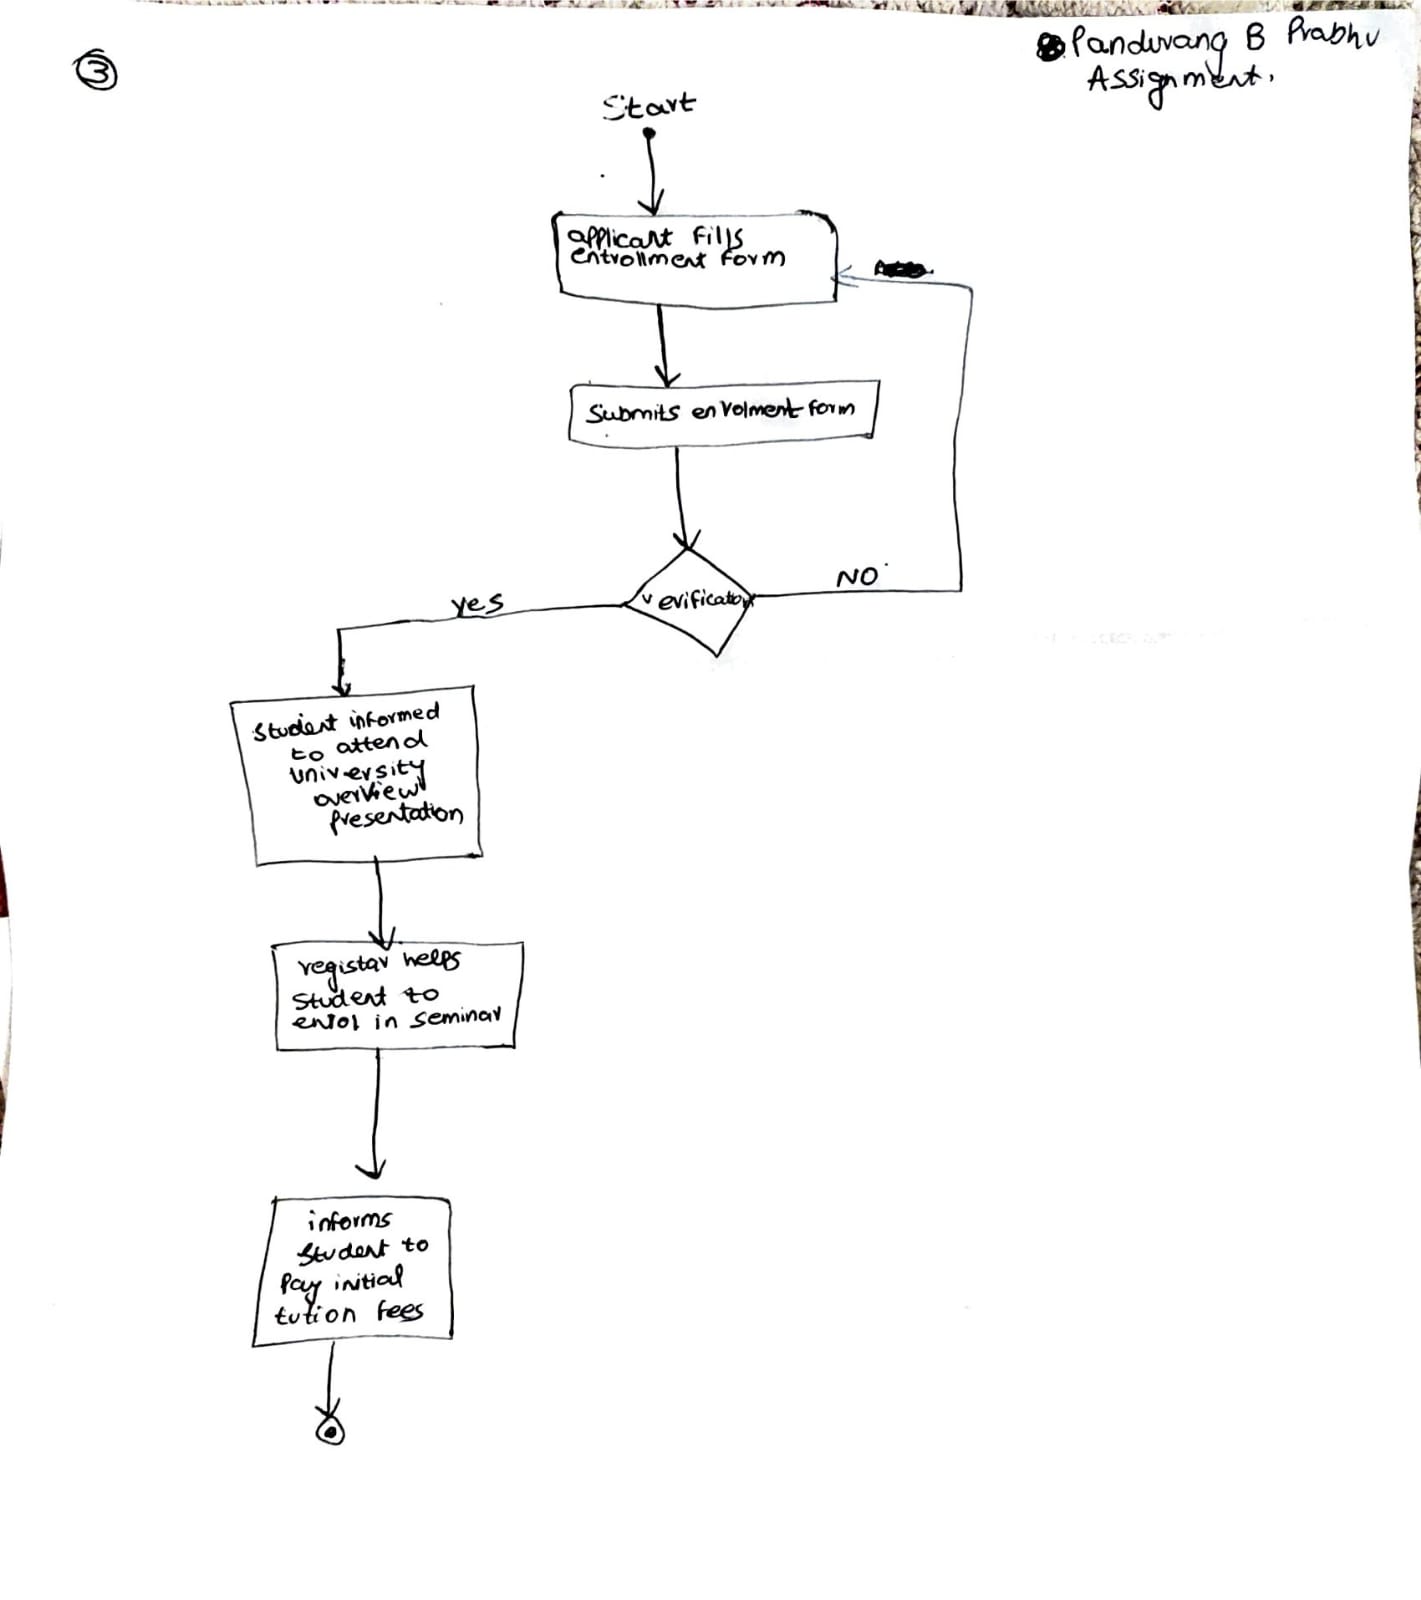 3
Panduvang B Prabhu
Assignment.
Start
applicant fills
entrollment form
Submits envolment form
verification
NO
yes
Student informed
to attend
university
overview
presentation
registar helps
Student to
enrol in seminar
informs
Student to
Pay initial
tution fees